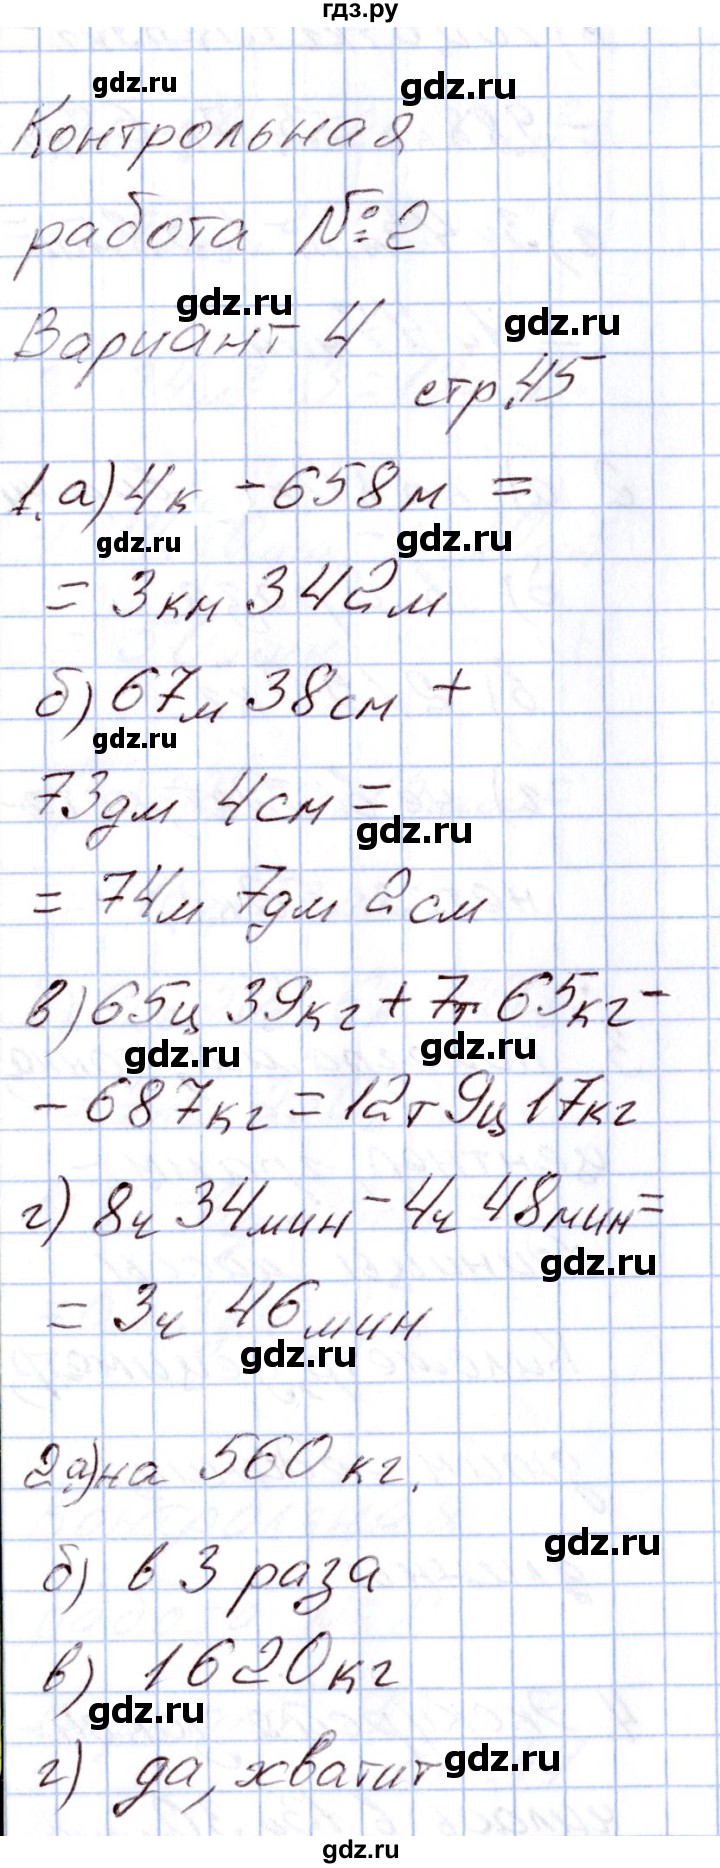 гдз.ру
gdz.ru
gdz.ru
Контрольная
работа № 2
gdz.ru
gdz.ru
Вариант 4
стр.45
1.а) 4к - 658м =
gdz.ru
gdz.ru
= 3км 342м
б) 67м 38см +
gdz.ru
73дм 4см =
gdz.ru
= 74м 7дм 2см
в) 65ц 39кг + 7т 65кг -
gdz.ru
gdz.ru
- 687кг = 12т 9ц 17кг
г) 8ч 34мин - 4ч 48мин =
gdz.ru
= 3ч 46мин
gdz.ru
2а) на 560 кг.
gdz.ru
б) в 3 раза
в) 1620кг
gdz.ru
г) да, хватит
gdz.ru
gdz.ru